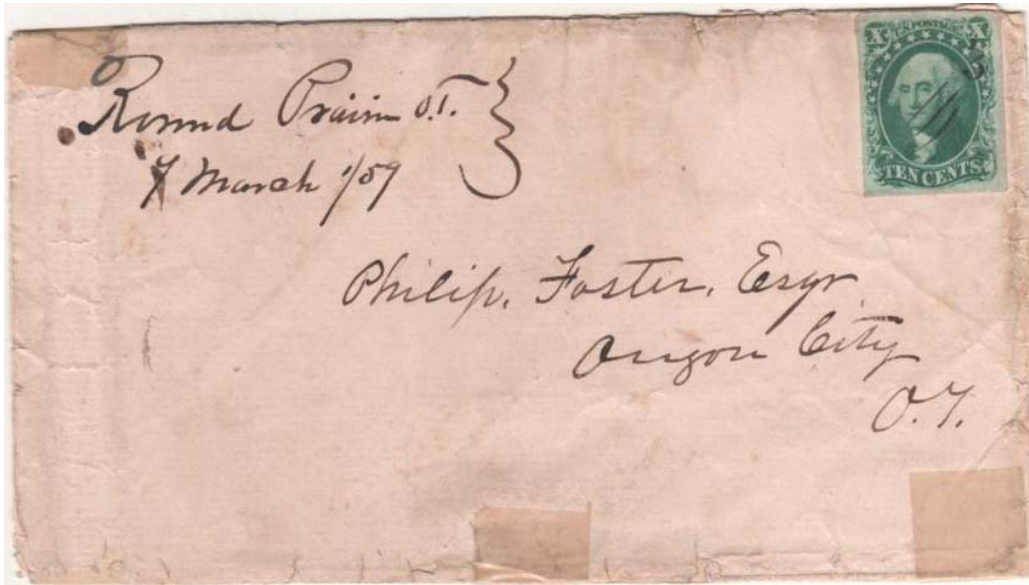 Round Prairie O.T.
7 March 1/59
X X
U.S. POSTAGE
5
TEN CENTS
Philip. Foster. Esqr
Oregon City
O.T.